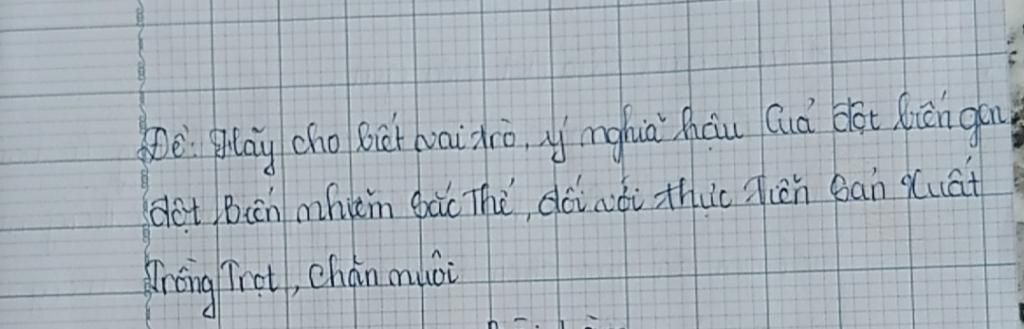 Đề: Hãy cho biết vai trò, ý nghĩa hậu quả đột biến gen
đột biến nhiễm sắc thể, đối với thực tiễn sản xuất
Trồng Trọt, chăn nuôi